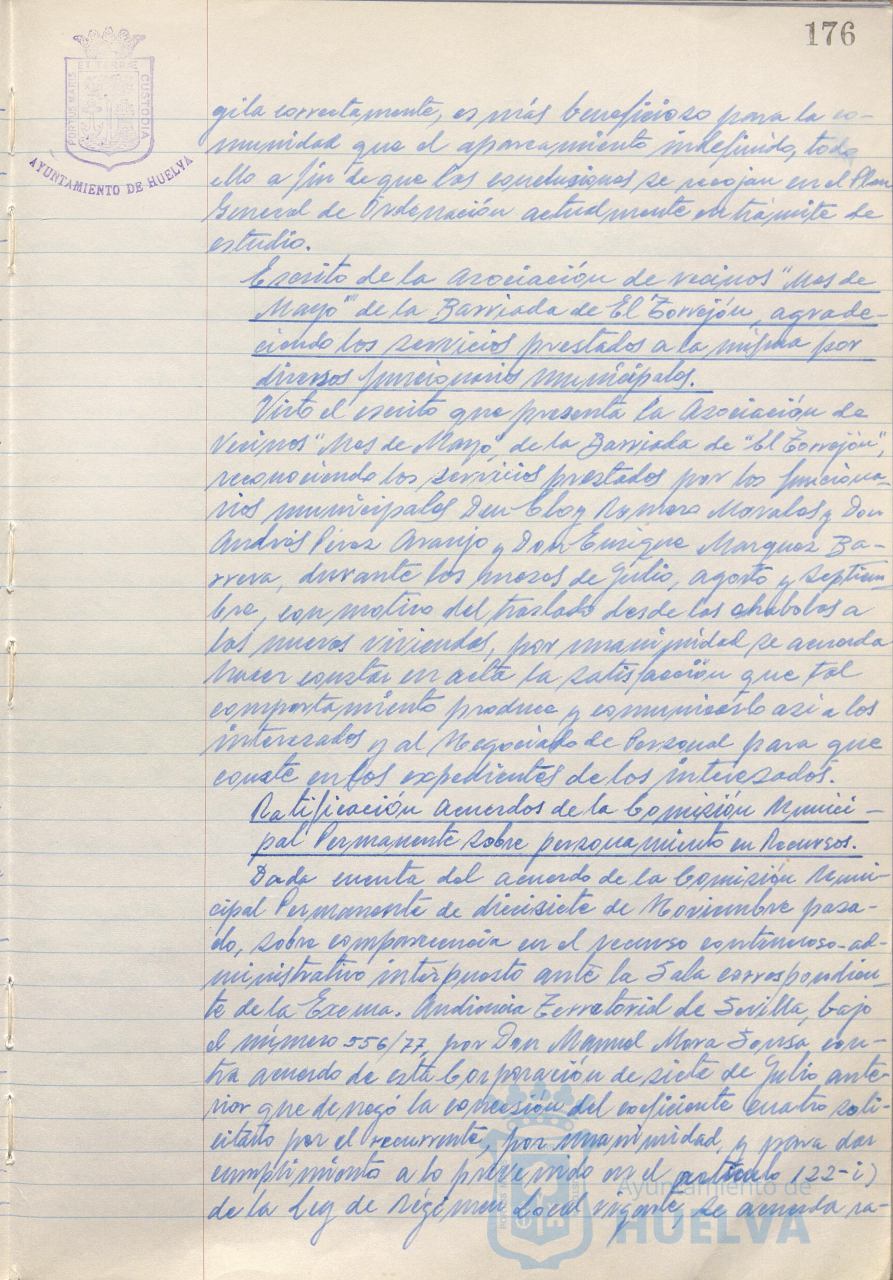 176
PORTUS MARIS
ET TERRÆ
CUSTODIA
AYUNTAMIENTO DE HUELVA
gila correctamente, es más beneficioso para la co-
munidad que el aparcamiento indefinido, todo
ello a fin de que las conclusiones se recojan en el Plan
General de Ordenación actualmente en trámite de
estudio.
Escrito de la Asociación de vecinos "Mes de
Mayo" de la Barriada de El Torrejón, agrade-
ciendo los servicios prestados a la misma por
diversos funcionarios municipales.
Visto el escrito que presenta la Asociación de
Vecinos "Mes de Mayo", de la Barriada de "El Torrejón",
reconociendo los servicios prestados por los funciona-
rios municipales Don Eloy Romero Morales y Don
Andrés Pérez Araujo y Don Enrique Marquez Ba-
rrera, durante los meses de Julio, agosto y septiem-
bre, con motivo del traslado desde las chabolas a
las nuevas viviendas, por unanimidad se acuerda
hacer constar en acta la satisfacción que tal
comportamiento produce y comunicarlo asi a los
interesados y al Negociado de Personal para que
conste en los expedientes de los interesados.
Ratificación acuerdos de la Comisión Munici-
pal Permanente sobre personamiento en Recursos.
Dada cuenta del acuerdo de la Comisión Muni-
cipal Permanente de diecisiete de Noviembre pasa-
do, sobre comparecencia en el recurso contencioso-ad-
ministrativo interpuesto ante la Sala correspondien-
te de la Excma. Audiencia Territorial de Sevilla, bajo
el número 556/77, por Don Manuel Mora Sousa con-
tra acuerdo de esta Corporación de siete de Julio ante-
rior que denegó la concesión del coeficiente cuatro soli-
citado por el recurrente, por unanimidad, y para dar
cumplimiento a lo prevenido en el artículo 122-i)
de la Ley de Régimen Local vigente, se acuerda ra-
Ayuntamiento de
HUELVA